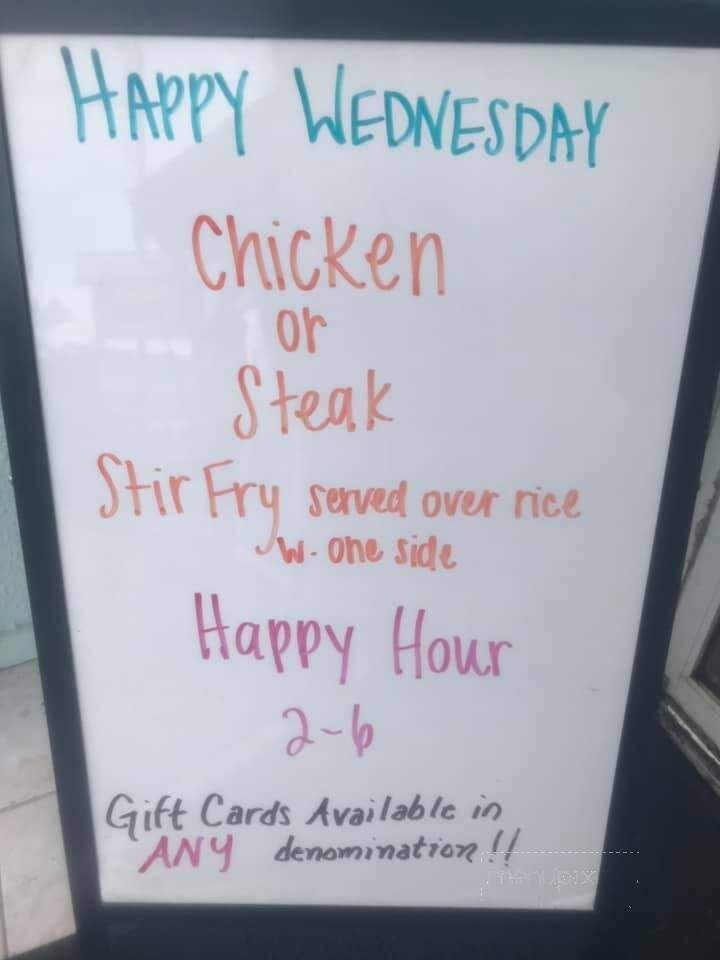 HAPPY WEDNESDAY
Chicken
or
Steak
Stir Fry served over rice
w. one side
Happy Hour
2-6
Gift Cards Available in
ANY denomination!!